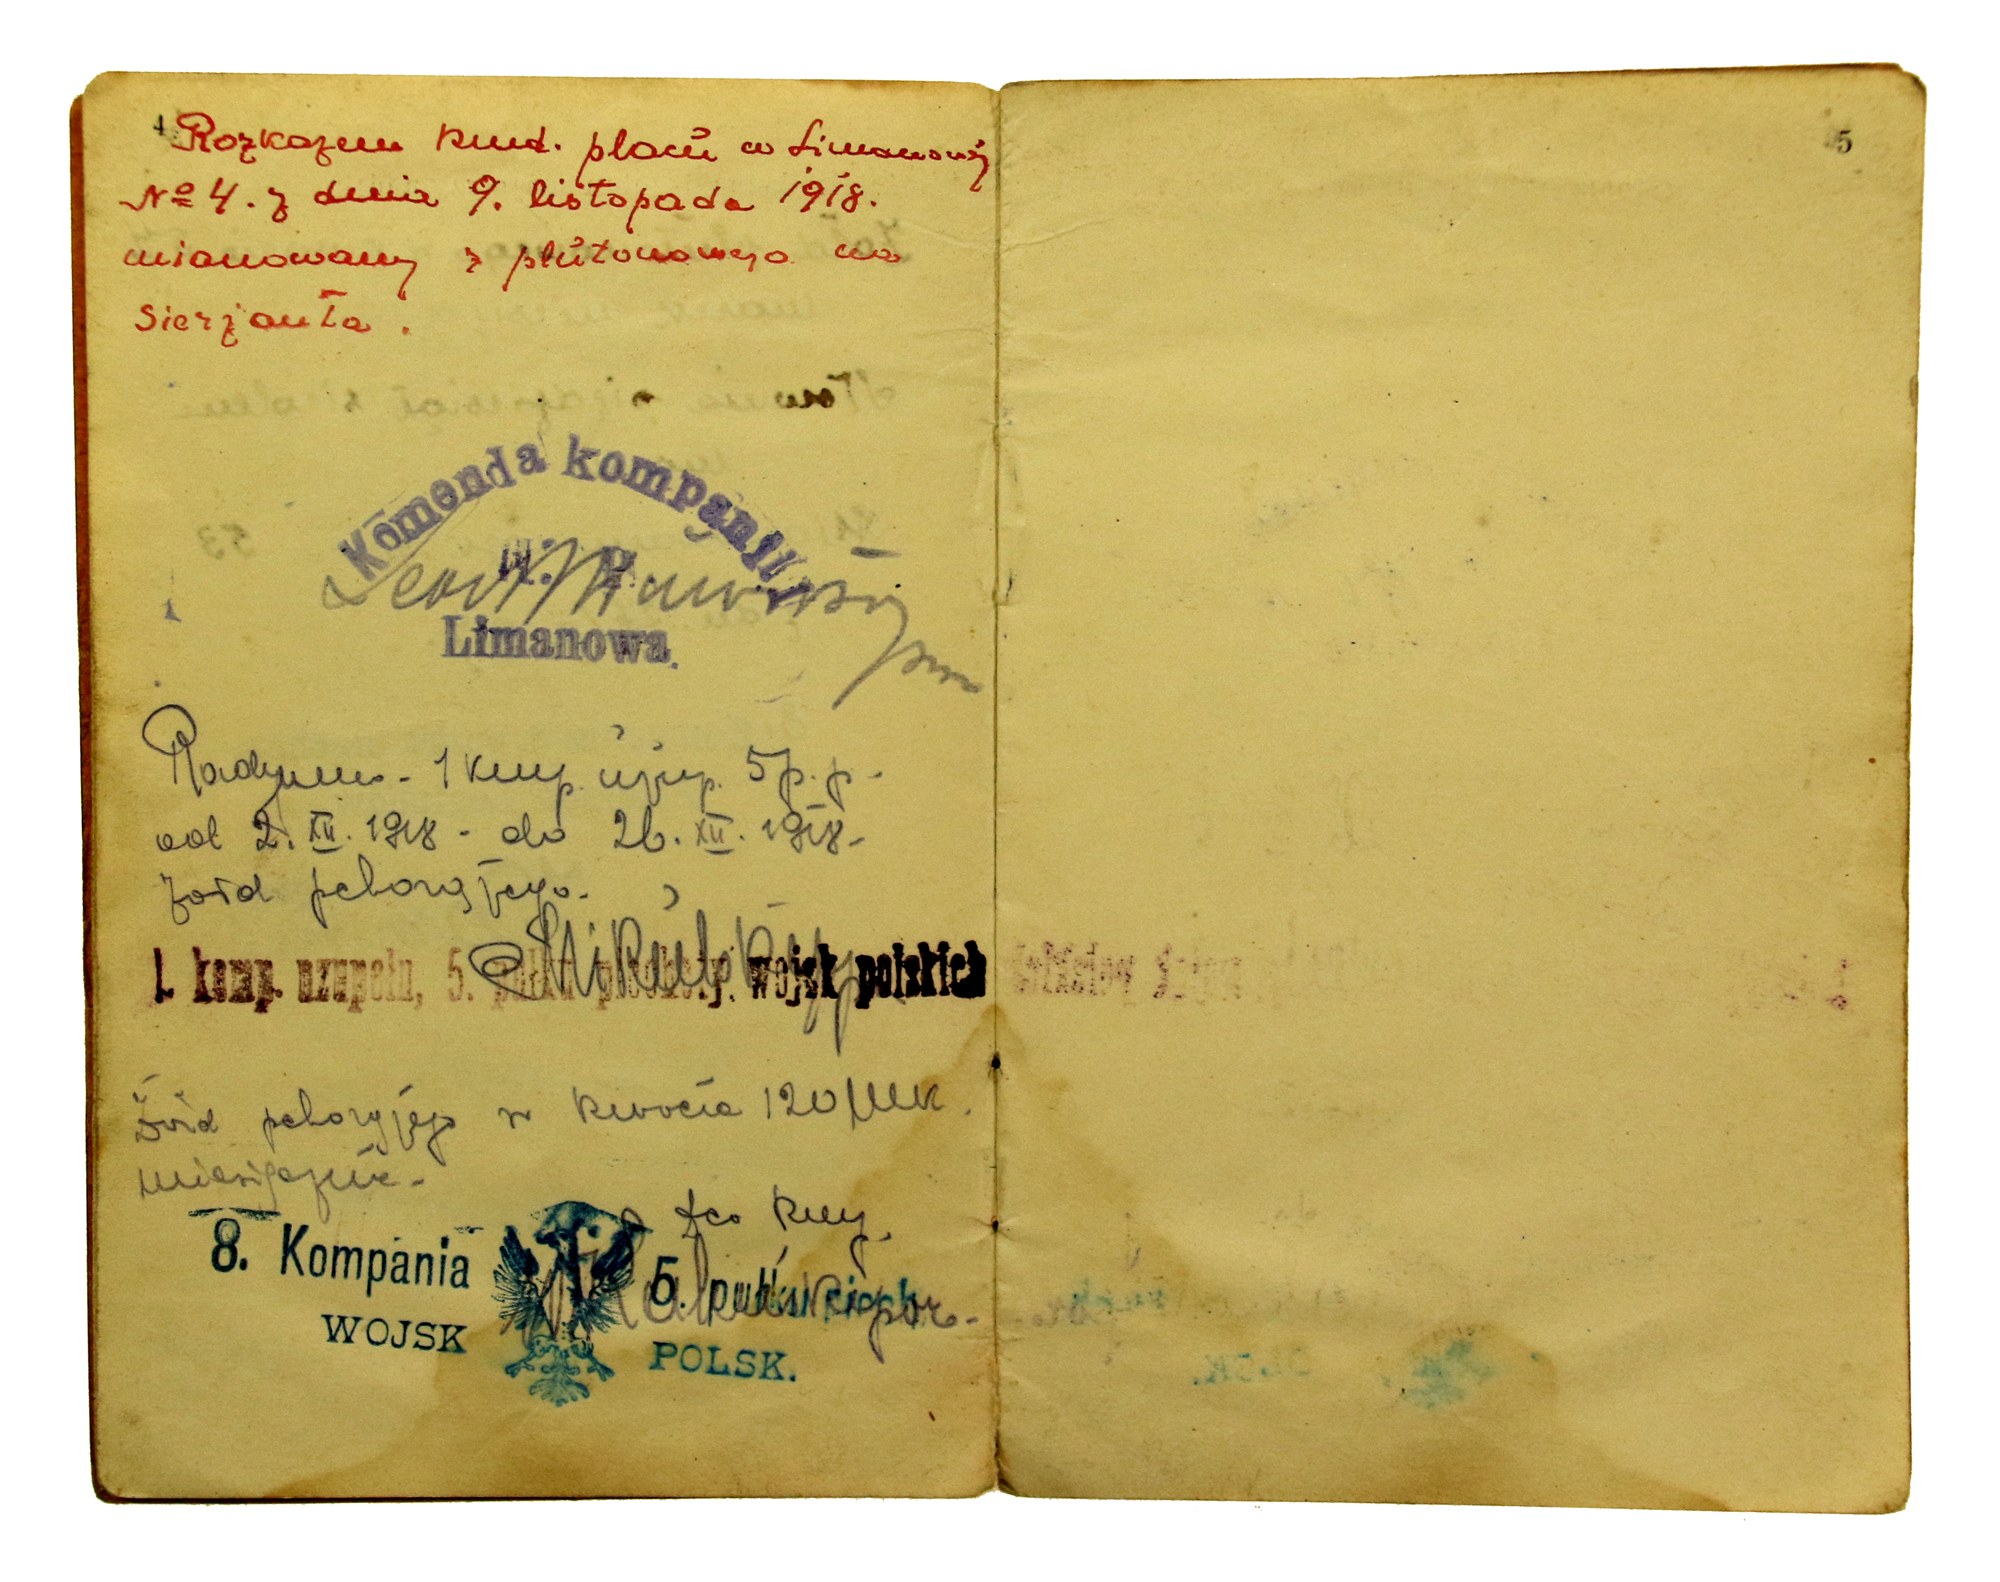 4
Rozkazem kmd. placu w Limanowej
№ 4. z dnia 9. listopada 1918.
mianowany z plutonowego na
sierżanta.
Komenda kompanii
W. P.
Limanowa.
Radymno - 1 kmp. uzup. 5 p. p.
od 2. XII. 1918 - do 26. XII. 1918 -
żołd pobrał jego.
1. komp. uzupełn. 5. pułku piechoty. wojsk polskich
Żołd w kwocie 120 Mk.
miesięcznie -
dco kmp.
8. Kompania 5. pułku piech.
WOJSK POLSK.
por. -
5